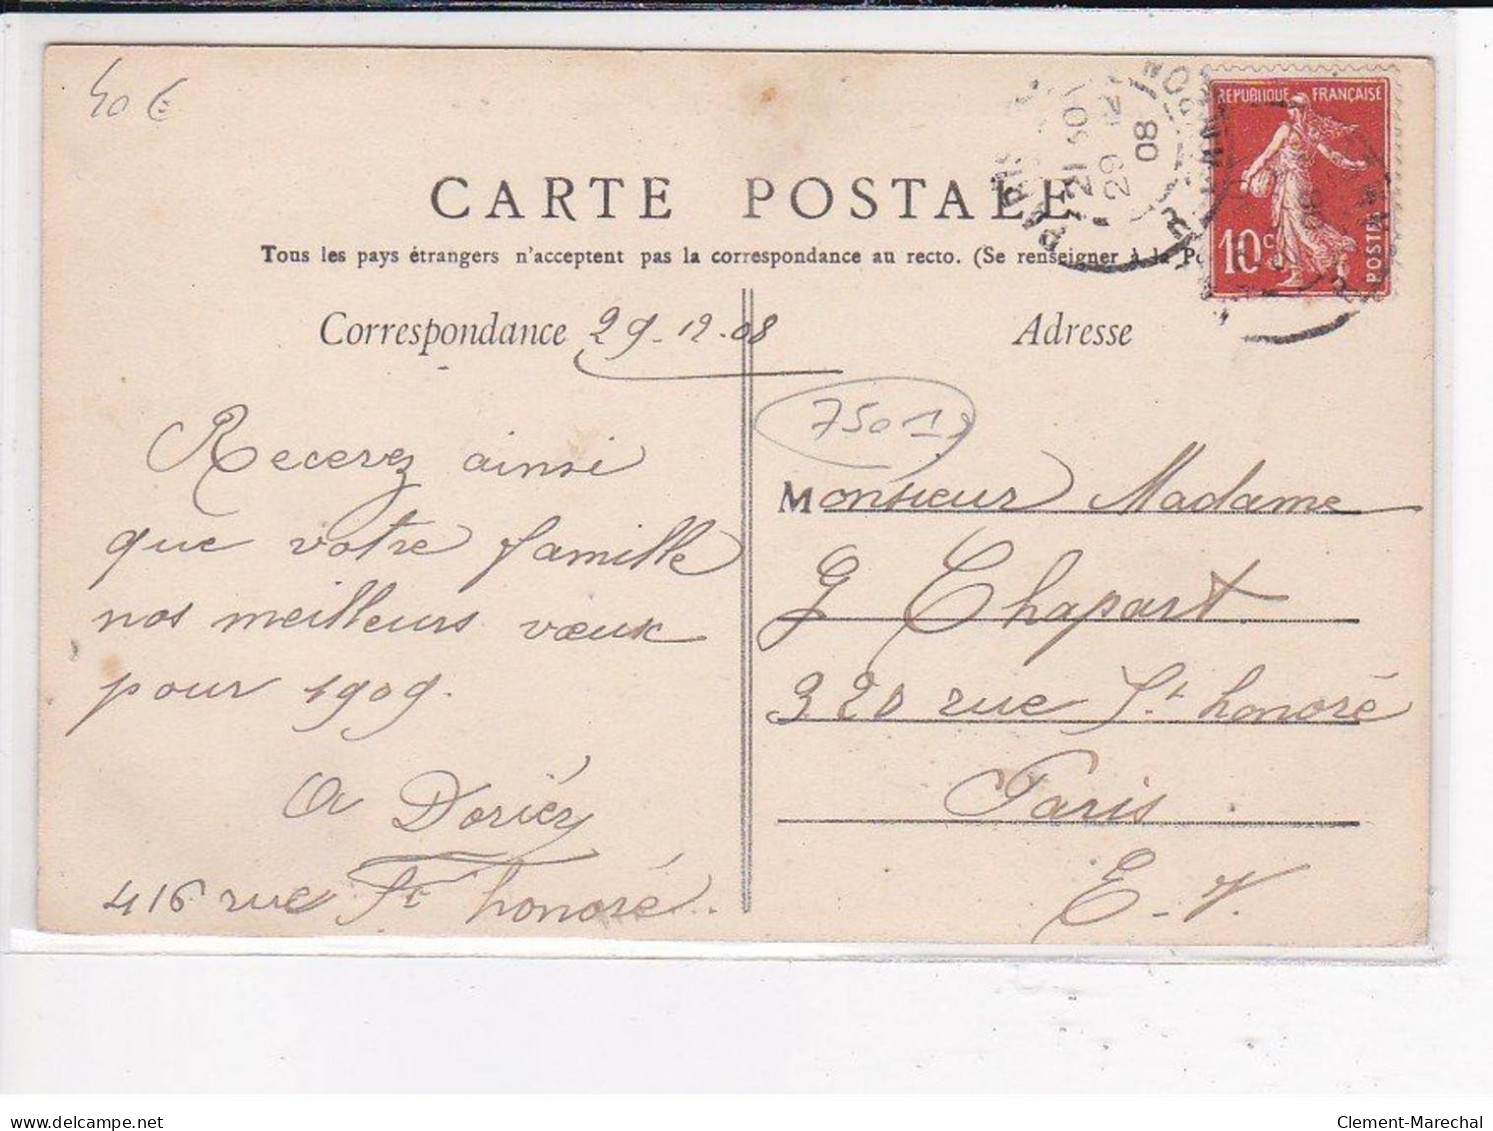 40 €
REPUBLIQUE FRANÇAISE
10c
POSTES
PARIS
21 50
29 12
08
CARTE POSTALE
Tous les pays étrangers n'acceptent pas la correspondance au recto. (Se renseigner à la Po
Correspondance 29-12-08
Adresse
75019
Recevez ainsi
que votre famille
nos meilleurs vœux
pour 1909.
A Doriéz
416 rue St honoré.
Monsieur Madame
G Chapart
320 rue St honoré
Paris
E.V.
delcampe.net
Clement-Marechal